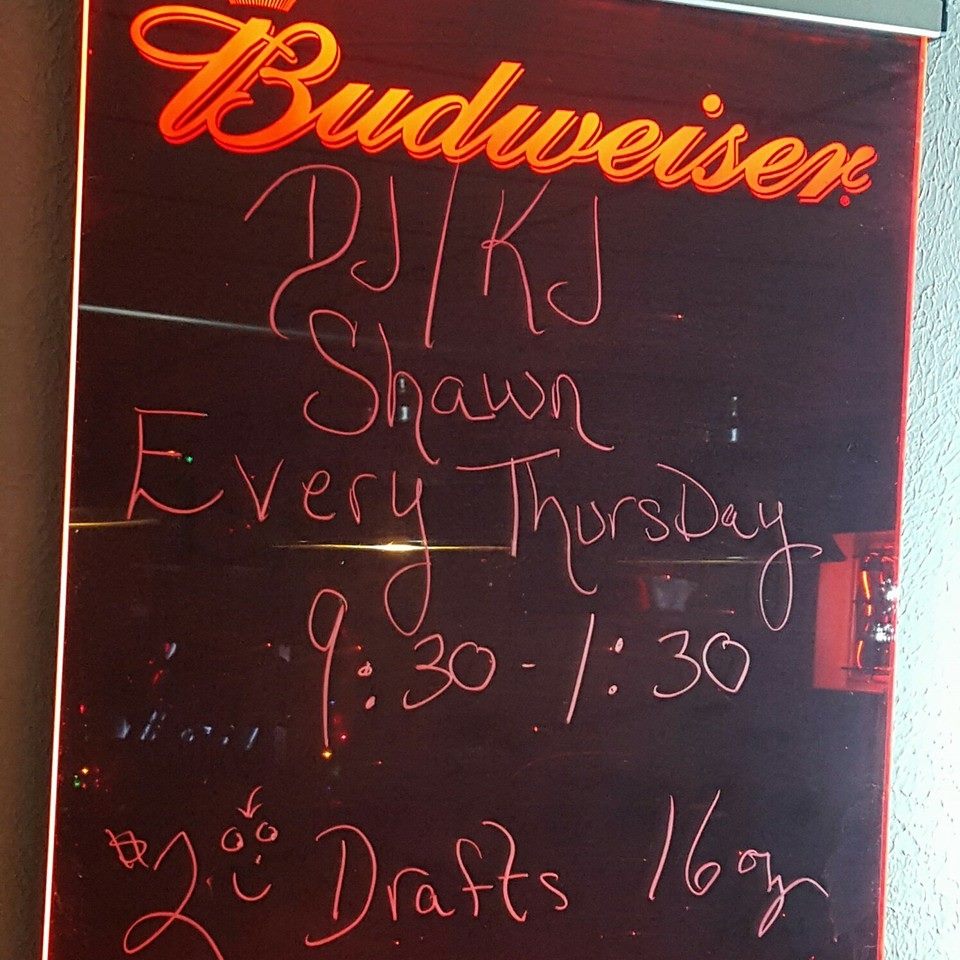 Budweiser
DJ/KJ
Shawn
Every ThursDay
9:30-1:30
$2.00 Drafts 16oz